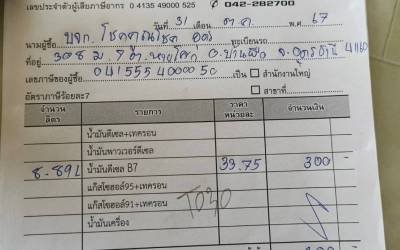 เลขประจำตัวผู้เสียภาษีอากร 0 4135 49000 525 042-282700
วันที่ 31 เดือน ต.ค. พ.ศ. 67
นามผู้ซื้อ บจก. โชคคูณโชค ทะเบียนรถ
ที่อยู่ 308 ม.7 ต. อ.บ้านผือ จ.อุดรธานี 41160
เลขภาษีของผู้ซื้อ 0415554000050 เป็น สำนักงานใหญ่
อัตราภาษีร้อยละ7 สาขาที่
จำนวนลิตร รายการ ราคาหน่วยละ จำนวนเงิน
น้ำมันดีเซล+เทครอน
น้ำมันพาวเวอร์ดีเซล
8.89L น้ำมันดีเซล B7 33.75 300 -
แก๊สโซฮอล์95+เทครอน
แก๊สโซฮอล์91+เทครอน
น้ำมันเครื่อง